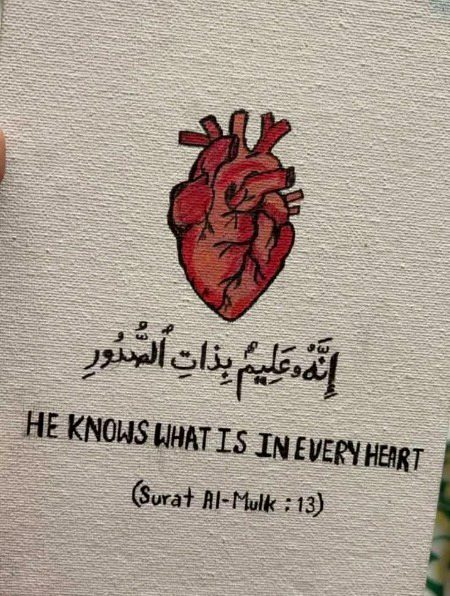 إِنَّهُۥ عَلِيمٌۢ بِذَاتِ ٱلصُّدُورِ
HE KNOWS WHAT IS IN EVERY HEART
(Surat Al-Mulk : 13)